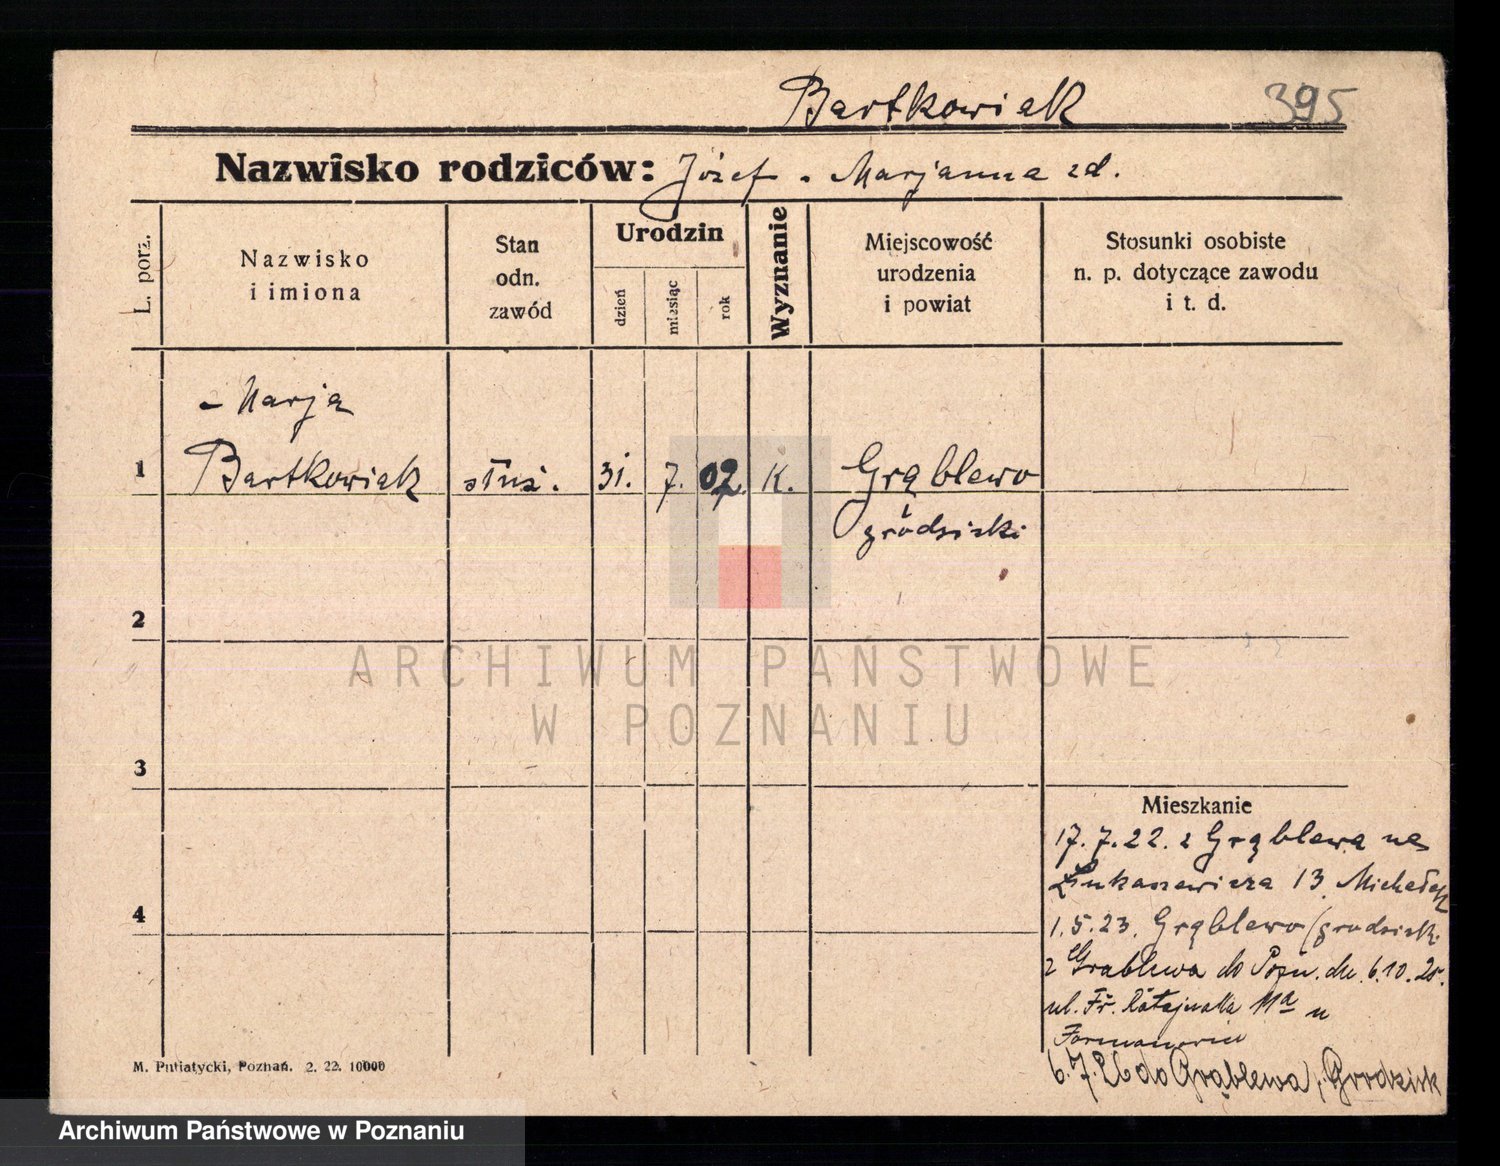 Bartkowiak 395
Nazwisko rodziców: Józef - Marjanna zd.
L. porz.
Nazwisko
i imiona
Stan
odn.
zawód
Urodzin
dzień
miesiąc
rok
Wyznanie
Miejscowość
urodzenia
i powiat
Stosunki osobiste
n. p. dotyczące zawodu
i t. d.
- Marja
1 Bartkowiak służ. 31. 7. 02. K. Grąblewo
grodziski
2
ARCHIWUM PAŃSTWOWE
W POZNANIU
3
Mieszkanie
17. 7. 22. z Grąblewa na
Łukaszewicza 13
4
1. 5. 23. Grąblewo (grodzisk.
z Grablewa do Pozn. dn. 6.10. 25.
ul. Fr. Ratajczaka 11a u
6. 7. 26 do Grąblewa, Grodzisk
M. Putiatycki, Poznań. 2. 22. 10000
Archiwum Państwowe w Poznaniu